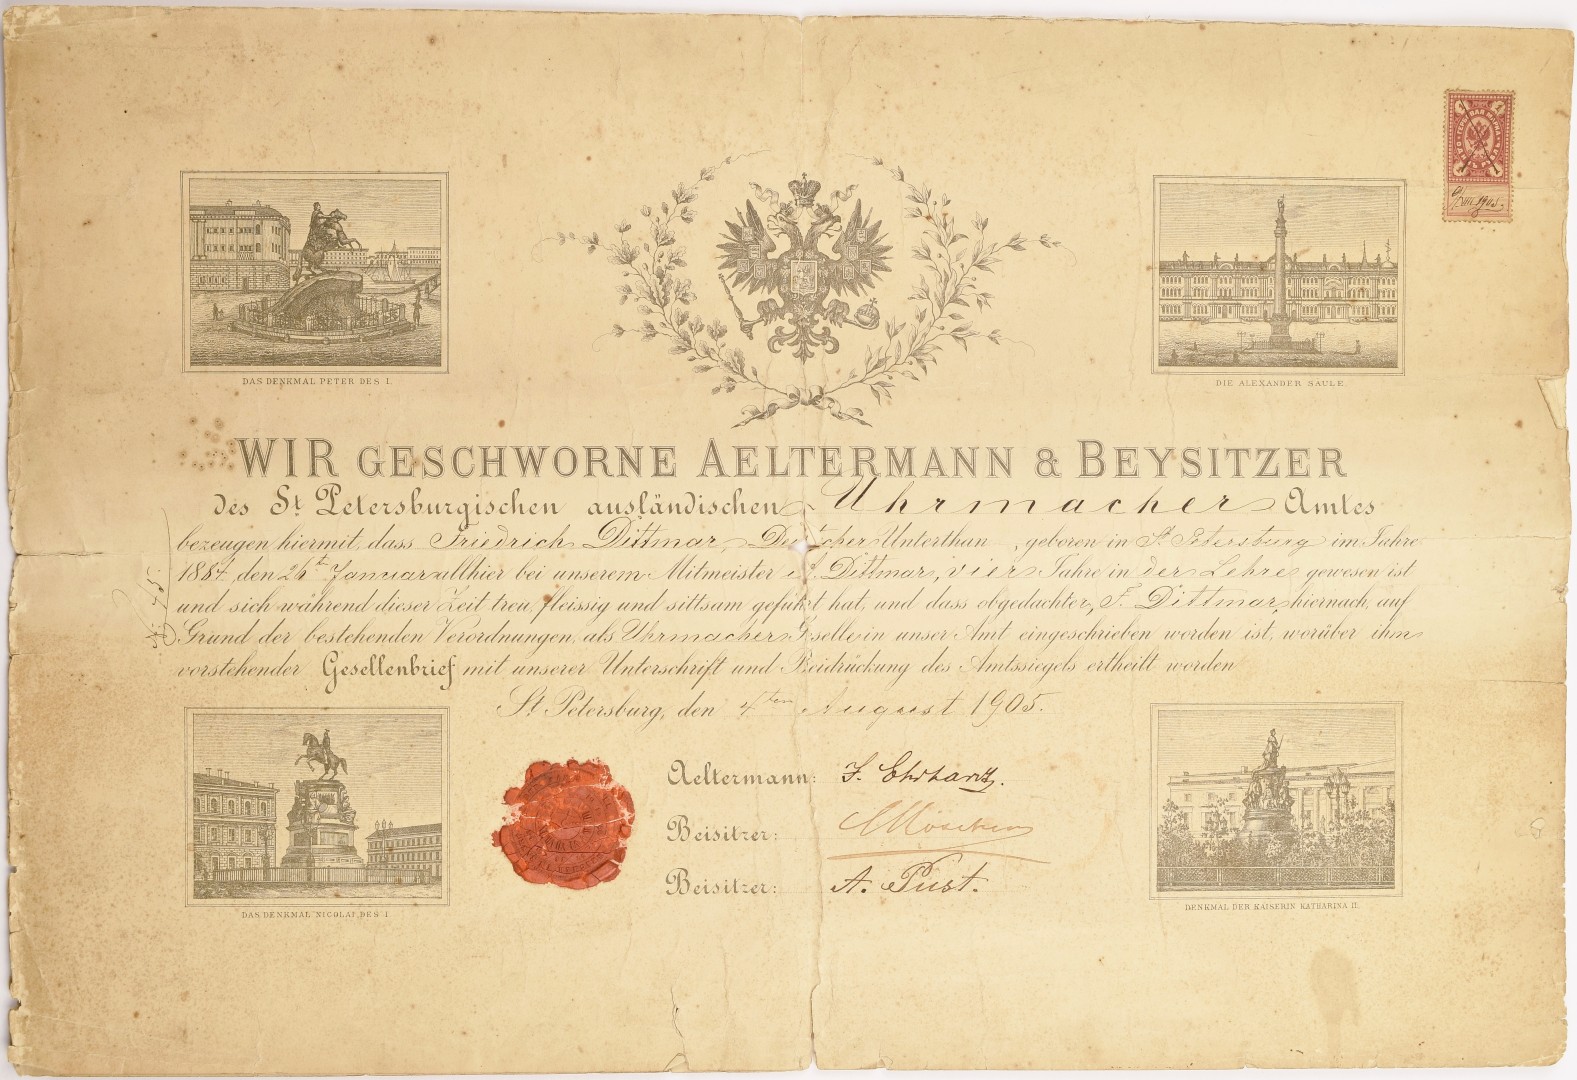 DAS DENKMAL PETER DES I.
DIE ALEXANDER SÄULE
1 1
1 1
WIR GESCHWORNE AELTERMANN & BEYSITZER
des St. Petersburgischen ausländischen Uhrmacher Amtes
bezeugen hiermit, dass Friedrich Dittmar, Deutscher Unterthan, geboren in St. Petersburg im Jahre
1887, den 26t Januar allhier bei unserem Mitmeister F. Dittmar, vier Jahre in der Lehre gewesen ist
und sich während dieser Zeit treu, fleissig und sittsam geführt hat, und dass obgedachter, F. Dittmar, hiernach, auf
Grund der bestehenden Verordnungen, als Uhrmacher Geselle in unser Amt eingeschrieben worden ist, worüber ihm
vorstehender Gesellenbrief mit unserer Unterschrift und Beidrückung des Amtssiegels ertheilt worden
St. Petersburg, den 4ten August 1905.
Aeltermann:
Beisitzer:
Beisitzer: A. Pust.
DAS DENKMAL NICOLAI DES I
DENKMAL DER KAISERIN KATHARINA II.